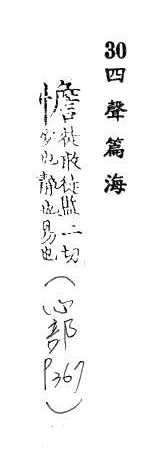 30四聲篇海
憺 徒敢徒監二切
安也靜也易也
(心部
P367)